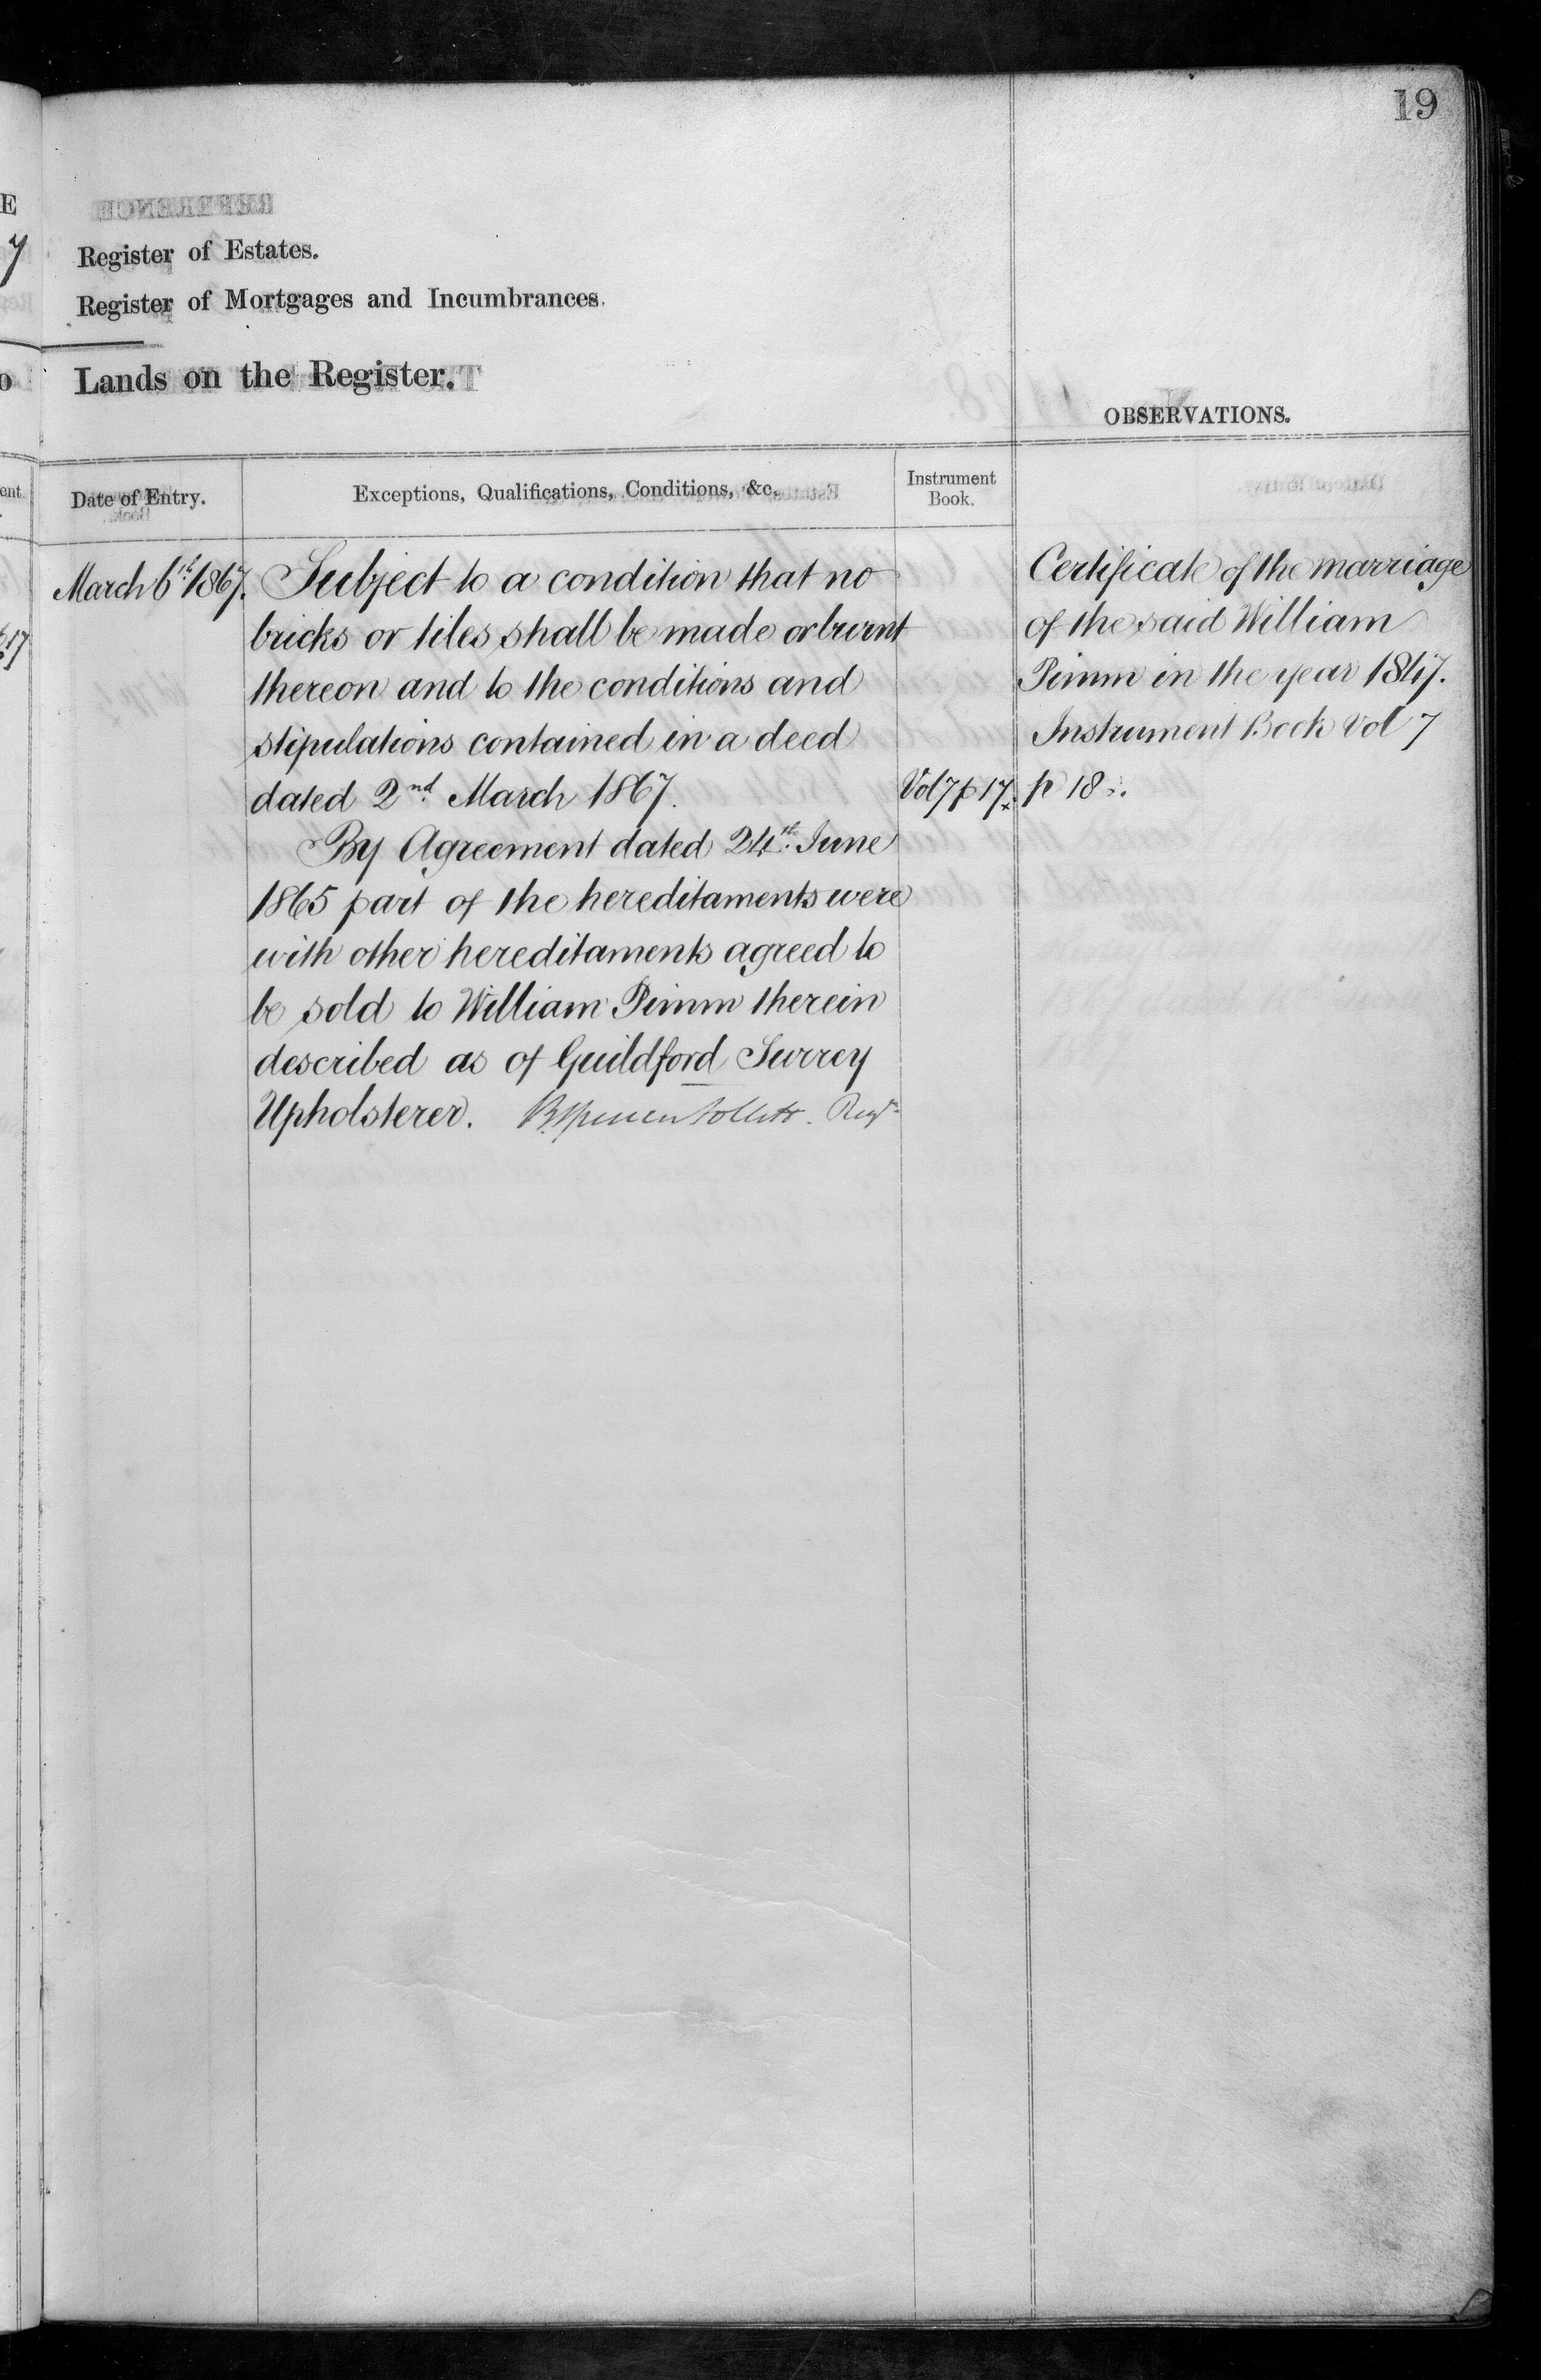 19
Register of Estates.
Register of Mortgages and Incumbrances.
Lands on the Register.
OBSERVATIONS.
Date of Entry.
Exceptions, Qualifications, Conditions, &c.
Instrument
Book.
March 6th 1867.
Subject to a condition that no
bricks or tiles shall be made or burnt
thereon and to the conditions and
stipulations contained in a deed
dated 2nd March 1867.
By Agreement dated 24th June
1865 part of the hereditaments were
with other hereditaments agreed to
be sold to William Pimm therein
described as of Guildford Surrey
Upholsterer.
Vol 7 p 17.
Certificate of the marriage
of the said William
Pimm in the year 1847.
Instrument Book Vol 7
p 18